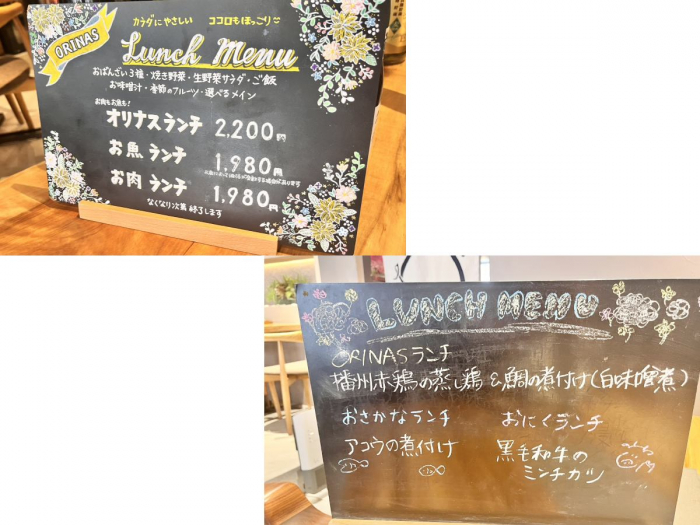 ORINAS
カラダにやさしい ココロもほっこり
Lunch Menu
おばんざい3種・焼き野菜・生野菜サラダ・ご飯
お味噌汁・季節のフルーツ・選べるメイン
お肉もお魚も!
オリナスランチ 2,200円
お魚ランチ 1,980円
お肉ランチ 1,980円
なくなり次第終了します
LUNCH MENU
ORINASランチ
播州赤鶏の蒸し鶏&鯛の煮付け(白味噌煮)
おさかなランチ おにくランチ
アコウの煮付け 黒毛和牛の
ミンチカツ